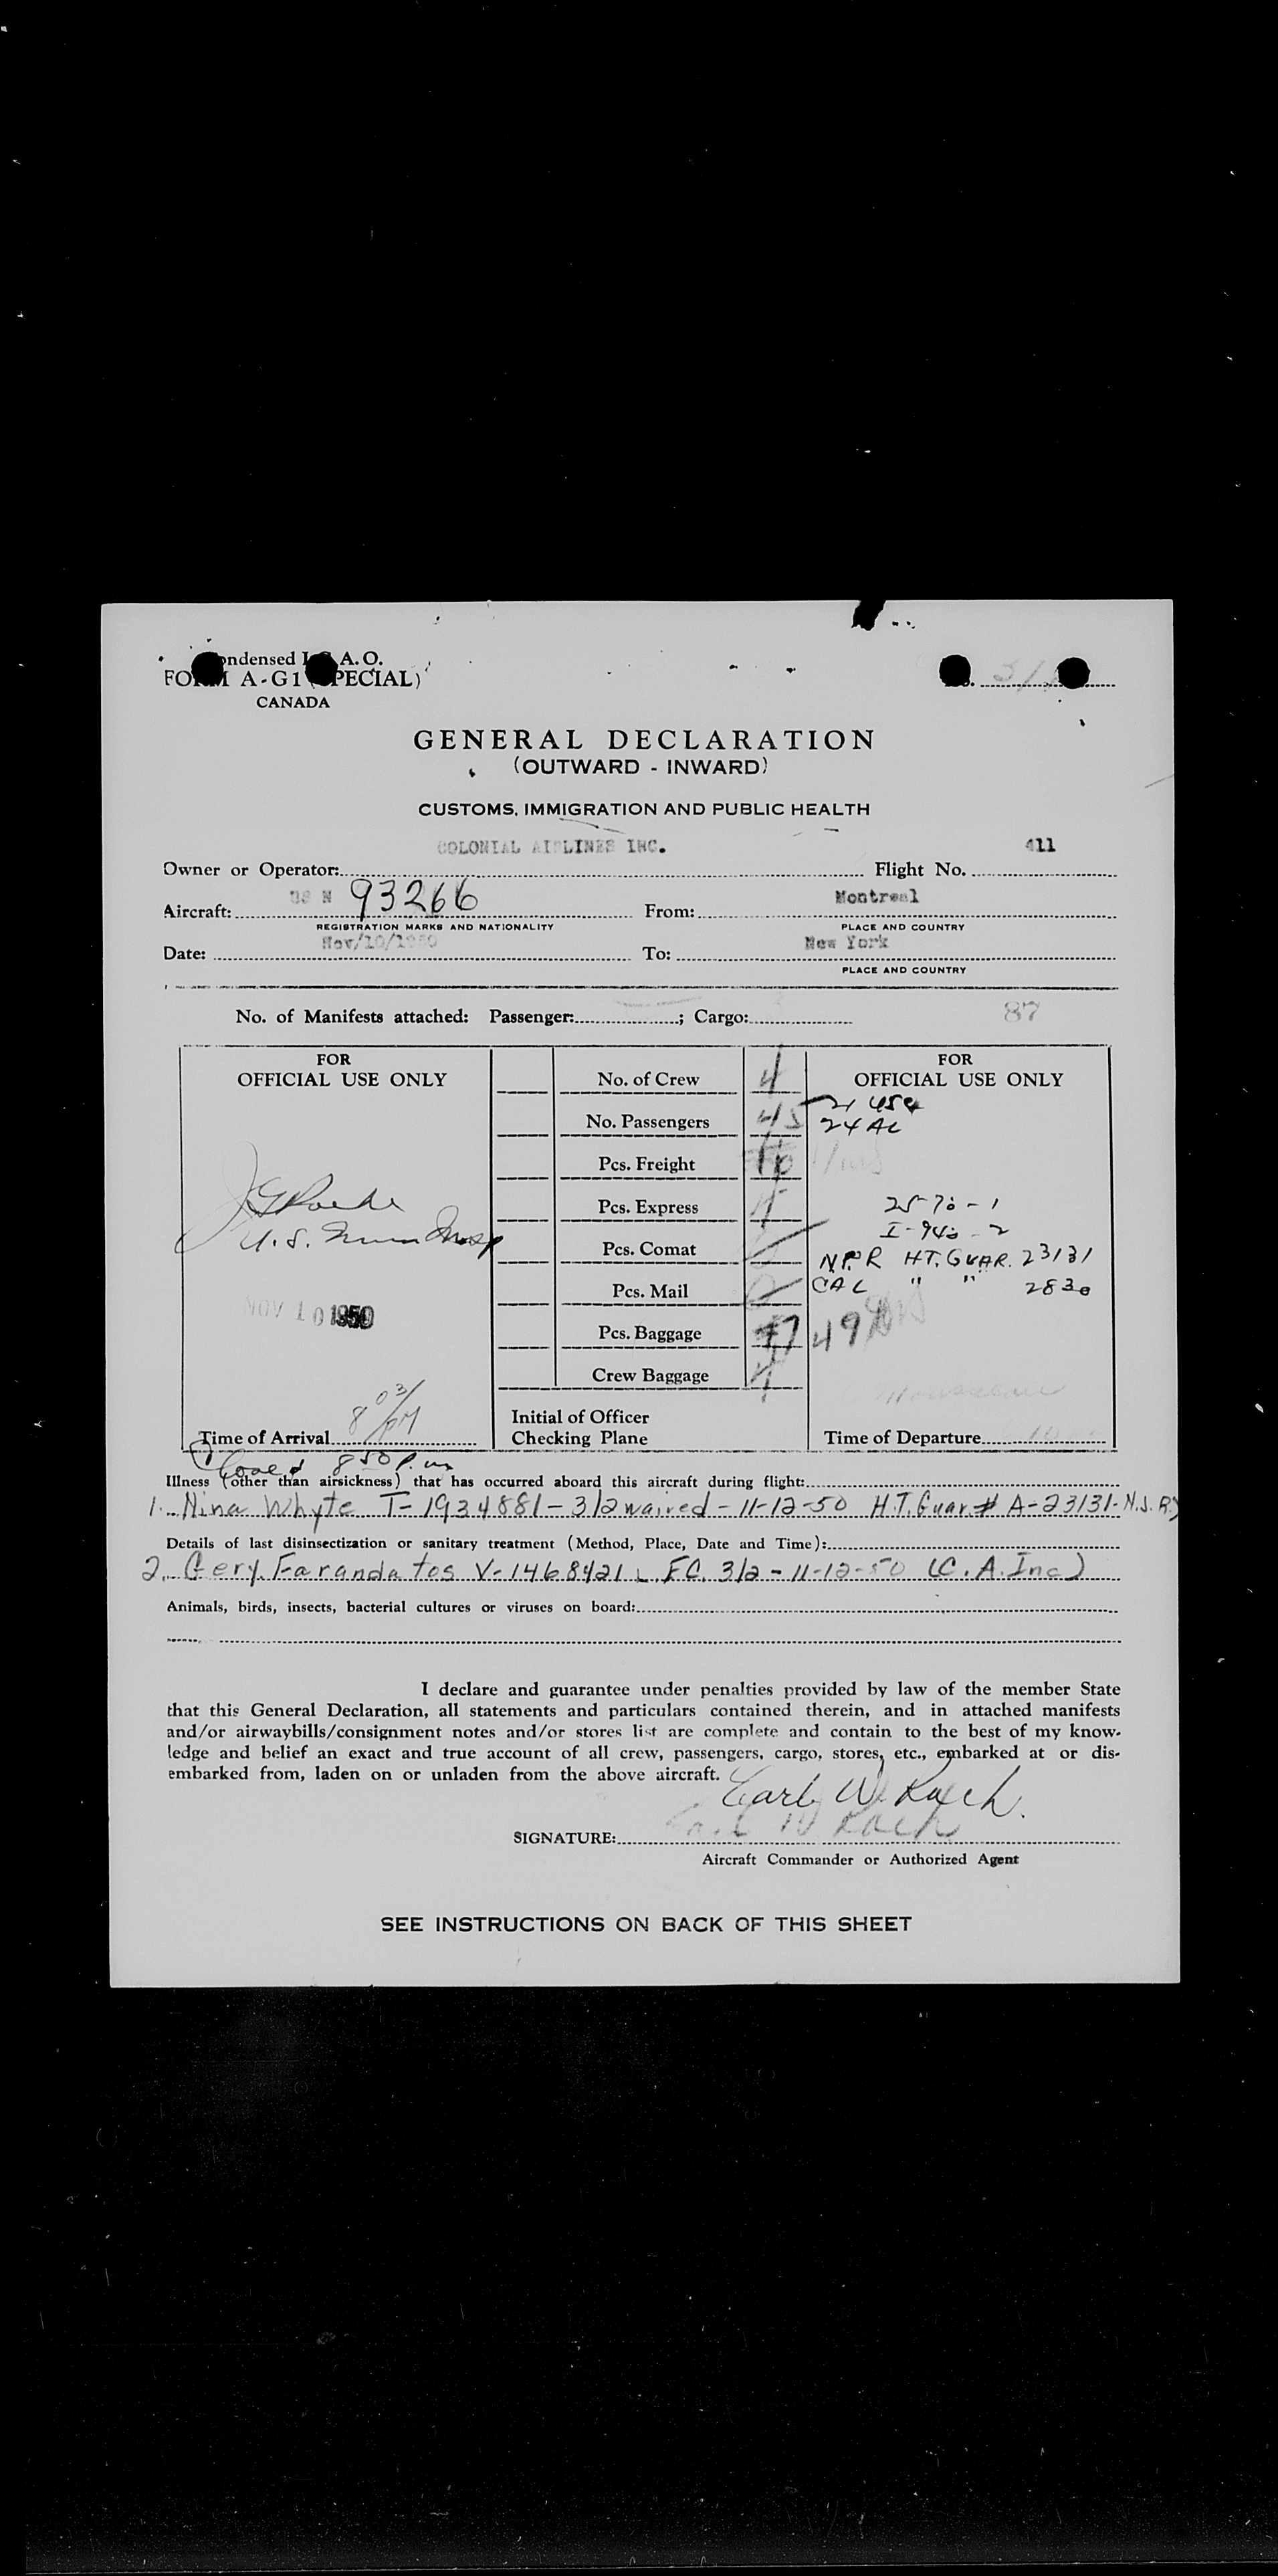 Condensed I.C.A.O.
FORM A-G1 (SPECIAL)
CANADA
GENERAL DECLARATION
(OUTWARD - INWARD)
CUSTOMS, IMMIGRATION AND PUBLIC HEALTH
COLONIAL AIRLINES INC. 411
Owner or Operator: Flight No.
US N 93266 Montreal
Aircraft: From:
REGISTRATION MARKS AND NATIONALITY PLACE AND COUNTRY
Nov/10/1950 New York
Date: To:
PLACE AND COUNTRY
No. of Manifests attached: Passenger: ; Cargo: 87
FOR
OFFICIAL USE ONLY
U.S. Immn Insp
NOV 10 1950
8 03/PM
Time of Arrival
No. of Crew 4
No. Passengers 45
Pcs. Freight
Pcs. Express
Pcs. Comat
Pcs. Mail
Pcs. Baggage
Crew Baggage
Initial of Officer
Checking Plane
FOR
OFFICIAL USE ONLY
21 USC
24 AL
25-70-1
I-940-2
N.P.R HT. GUAR. 23131
CAL " " 2830
49
Time of Departure
850 P.m
Illness (other than airsickness) that has occurred aboard this aircraft during flight:
1. Nina Whyte T-1934881-3/2 waived-11-12-50 H.T. Guar.# A-23131-N.J.R.
Details of last disinsectization or sanitary treatment (Method, Place, Date and Time):
2. Gery. Farandatos V-1468421 F.C. 3/2-11-12-50 (C.A. Inc)
Animals, birds, insects, bacterial cultures or viruses on board:
I declare and guarantee under penalties provided by law of the member State
that this General Declaration, all statements and particulars contained therein, and in attached manifests
and/or airwaybills/consignment notes and/or stores list are complete and contain to the best of my know-
ledge and belief an exact and true account of all crew, passengers, cargo, stores, etc., embarked at or dis-
embarked from, laden on or unladen from the above aircraft.
Earl W. Rach
SIGNATURE:
Aircraft Commander or Authorized Agent
SEE INSTRUCTIONS ON BACK OF THIS SHEET